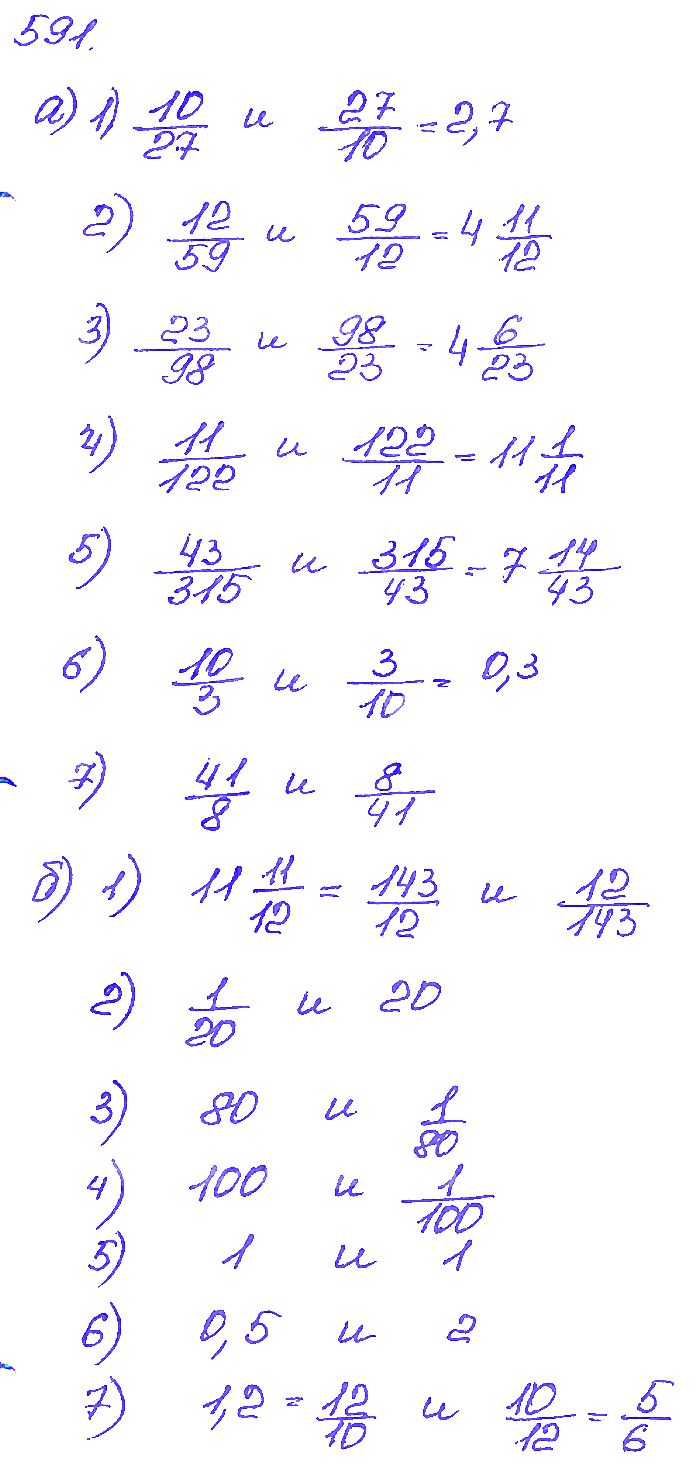 591.
а) 1) 10/27 и 27/10 = 2,7
2) 12/59 и 59/12 = 4 11/12
3) 23/98 и 98/23 = 4 6/23
4) 11/122 и 122/11 = 11 1/11
5) 43/315 и 315/43 = 7 14/43
6) 10/3 и 3/10 = 0,3
7) 41/8 и 8/41
б) 1) 11 11/12 = 143/12 и 12/143
2) 1/20 и 20
3) 80 и 1/80
4) 100 и 1/100
5) 1 и 1
6) 0,5 и 2
7) 1,2 = 12/10 и 10/12 = 5/6